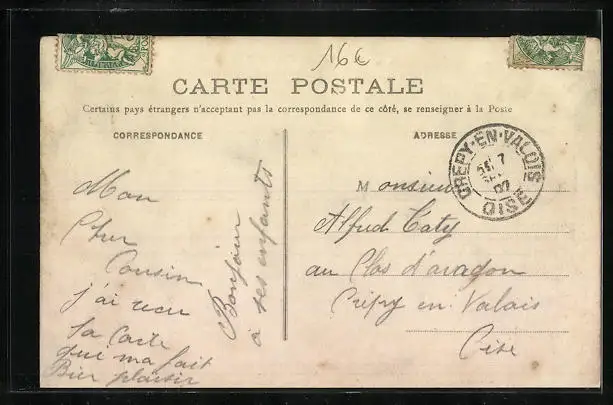 16€
CARTE POSTALE
Certains pays étrangers n'acceptant pas la correspondance de ce côté, se renseigner à la Poste
CORRESPONDANCE
ADRESSE
Mon
Cher
Cousin
j'ai recu
ta carte
qui ma fait
Bien plaisir
Bonjour
à tes enfants
CRÉPY-EN-VALOIS
7
07
OISE
Monsieur
Alfred Taty
au Clos d'aragon
Crépy en Valois
Oise